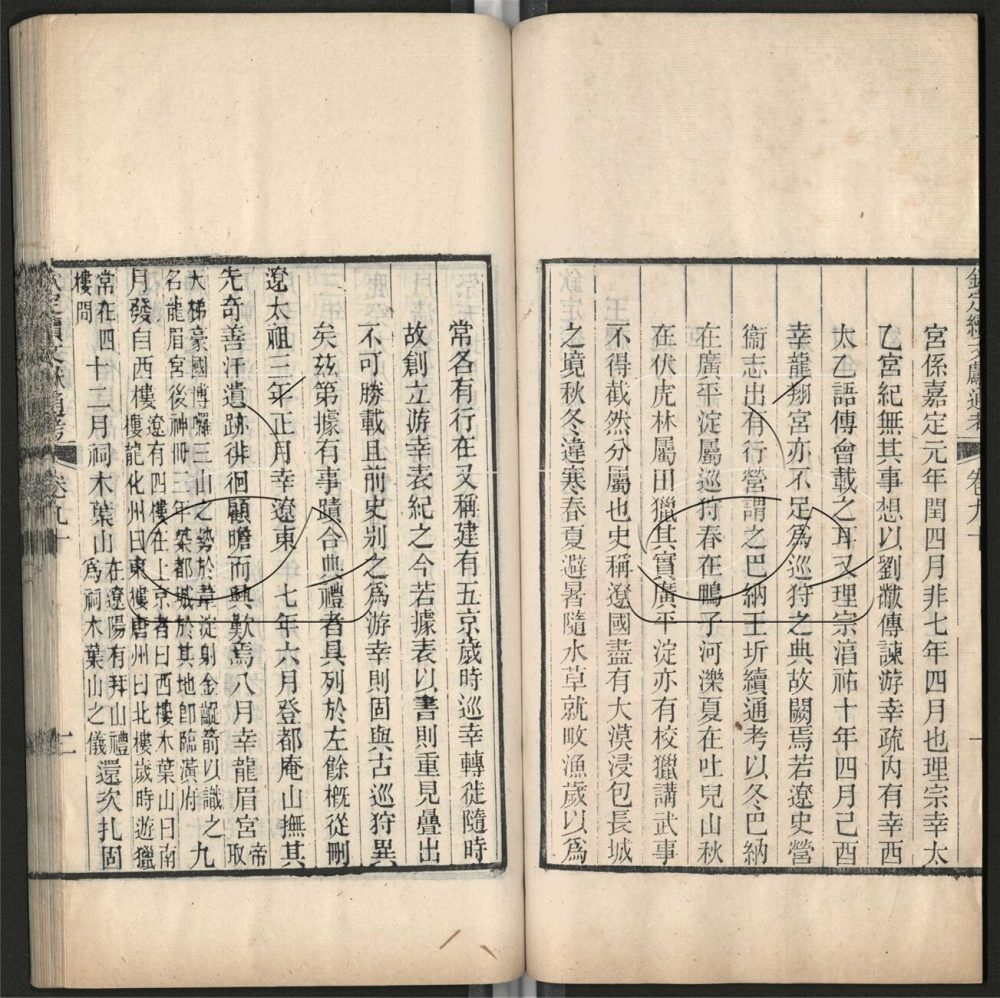 欽定續文獻通考 卷九十 一
宮係嘉定元年閏四月非七年四月也理宗幸太
乙宮紀無其事想以劉黻傳諫游幸疏內有幸西
太乙語傳會載之耳又理宗淳祐十年四月己酉
幸龍翔宮亦不足爲巡狩之典故闕焉若遼史營
衞志出有行營謂之巴納王圻續通考以冬巴納
在廣平淀屬巡狩春在鴨子河濼夏在吐兒山秋
在伏虎林屬田獵其實廣平淀亦有校獵講武事
不得截然分屬也史稱遼國盡有大漠浸包長城
之境秋冬違寒春夏避暑隨水草就畋漁歲以爲
常各有行在又稱建有五京歲時巡幸轉徙隨時
故創立游幸表紀之今若據表以書則重見疊出
不可勝載且前史別之爲游幸則固與古巡狩異
矣茲第據有事蹟合典禮者具列於左餘概從刪
遼太祖三年正月幸遼東 七年六月登都庵山撫其
先奇善汗遺跡徘徊顧瞻而興歎焉八月幸龍眉宮 帝取
天梯蒙國博囉三山之勢於葦淀射金齪箭以識之
名龍眉宮後神冊三年築都城於其地卽臨潢府 九
月發自西樓 遼有四樓在上京者曰西樓木葉山曰南
樓龍化州曰東樓唐州曰北樓歲時遊獵
常在四
樓間 十二月祠木葉山 在遼陽有拜山禮
爲祠木葉山之儀 還次扎固
欽定續文獻通考 卷九十 二